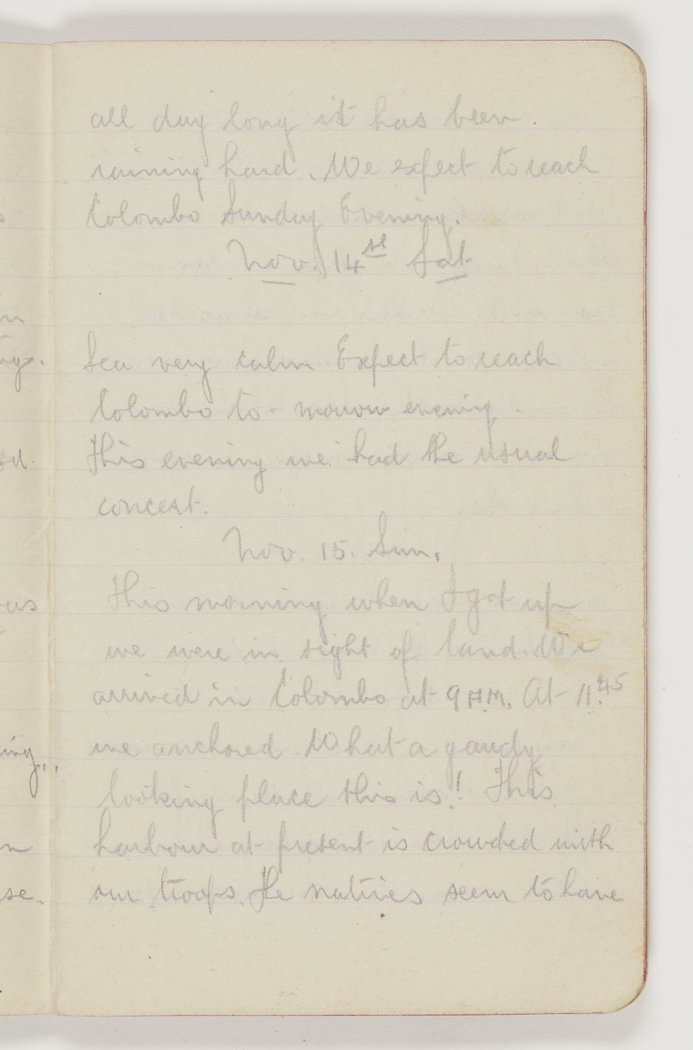 all day long it has been.
raining hard. We expect to reach
Colombo Sunday Evening.
Nov. 14st Sat
Sea very calm Expect to reach
Colombo to-morrow evening.
This evening we had the usual
concert.
Nov. 15. Sun.
This morning when I got up
we were in sight of land. We
arrived in Colombo at 9 A.M. At 11.45
we anchored. What a gaudy
looking place this is! This
harbour at present is crowded with
our troops. The natives seem to have